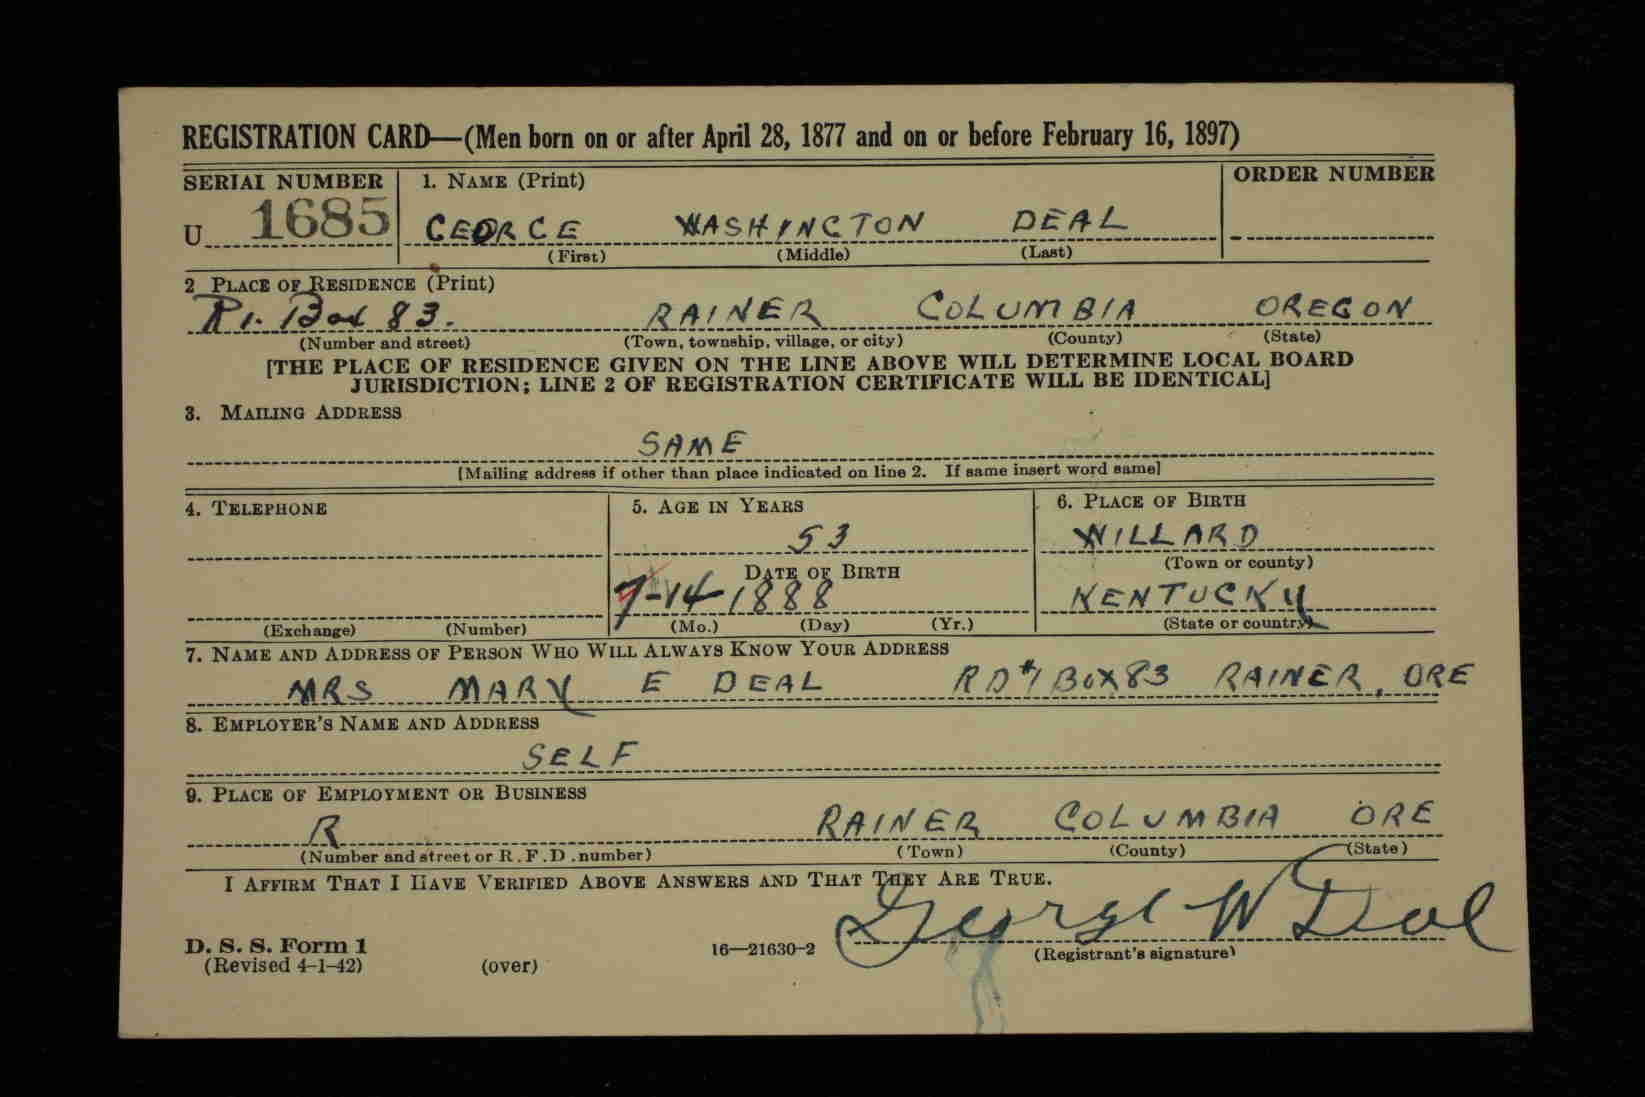 REGISTRATION CARD—(Men born on or after April 28, 1877 and on or before February 16, 1897)
SERIAL NUMBER 1. NAME (Print) ORDER NUMBER
U 1685 GEORGE WASHINGTON DEAL
(First) (Middle) (Last)
2 PLACE OF RESIDENCE (Print)
R1. Box 83. RAINER COLUMBIA OREGON
(Number and street) (Town, township, village, or city) (County) (State)
[THE PLACE OF RESIDENCE GIVEN ON THE LINE ABOVE WILL DETERMINE LOCAL BOARD
JURISDICTION; LINE 2 OF REGISTRATION CERTIFICATE WILL BE IDENTICAL]
3. MAILING ADDRESS
SAME
[Mailing address if other than place indicated on line 2. If same insert word same]
4. TELEPHONE 5. AGE IN YEARS 6. PLACE OF BIRTH
53 WILLARD
DATE OF BIRTH (Town or county)
7-14-1888 KENTUCKY
(Exchange) (Number) (Mo.) (Day) (Yr.) (State or country)
7. NAME AND ADDRESS OF PERSON WHO WILL ALWAYS KNOW YOUR ADDRESS
MRS MARY E DEAL RD#1 BOX 83 RAINER, ORE
8. EMPLOYER'S NAME AND ADDRESS
SELF
9. PLACE OF EMPLOYMENT OR BUSINESS
R RAINER COLUMBIA ORE
(Number and street or R.F.D. number) (Town) (County) (State)
I AFFIRM THAT I HAVE VERIFIED ABOVE ANSWERS AND THAT THEY ARE TRUE.
George W Deal
D. S. S. Form 1 16—21630-2 (Registrant's signature)
(Revised 4-1-42) (over)